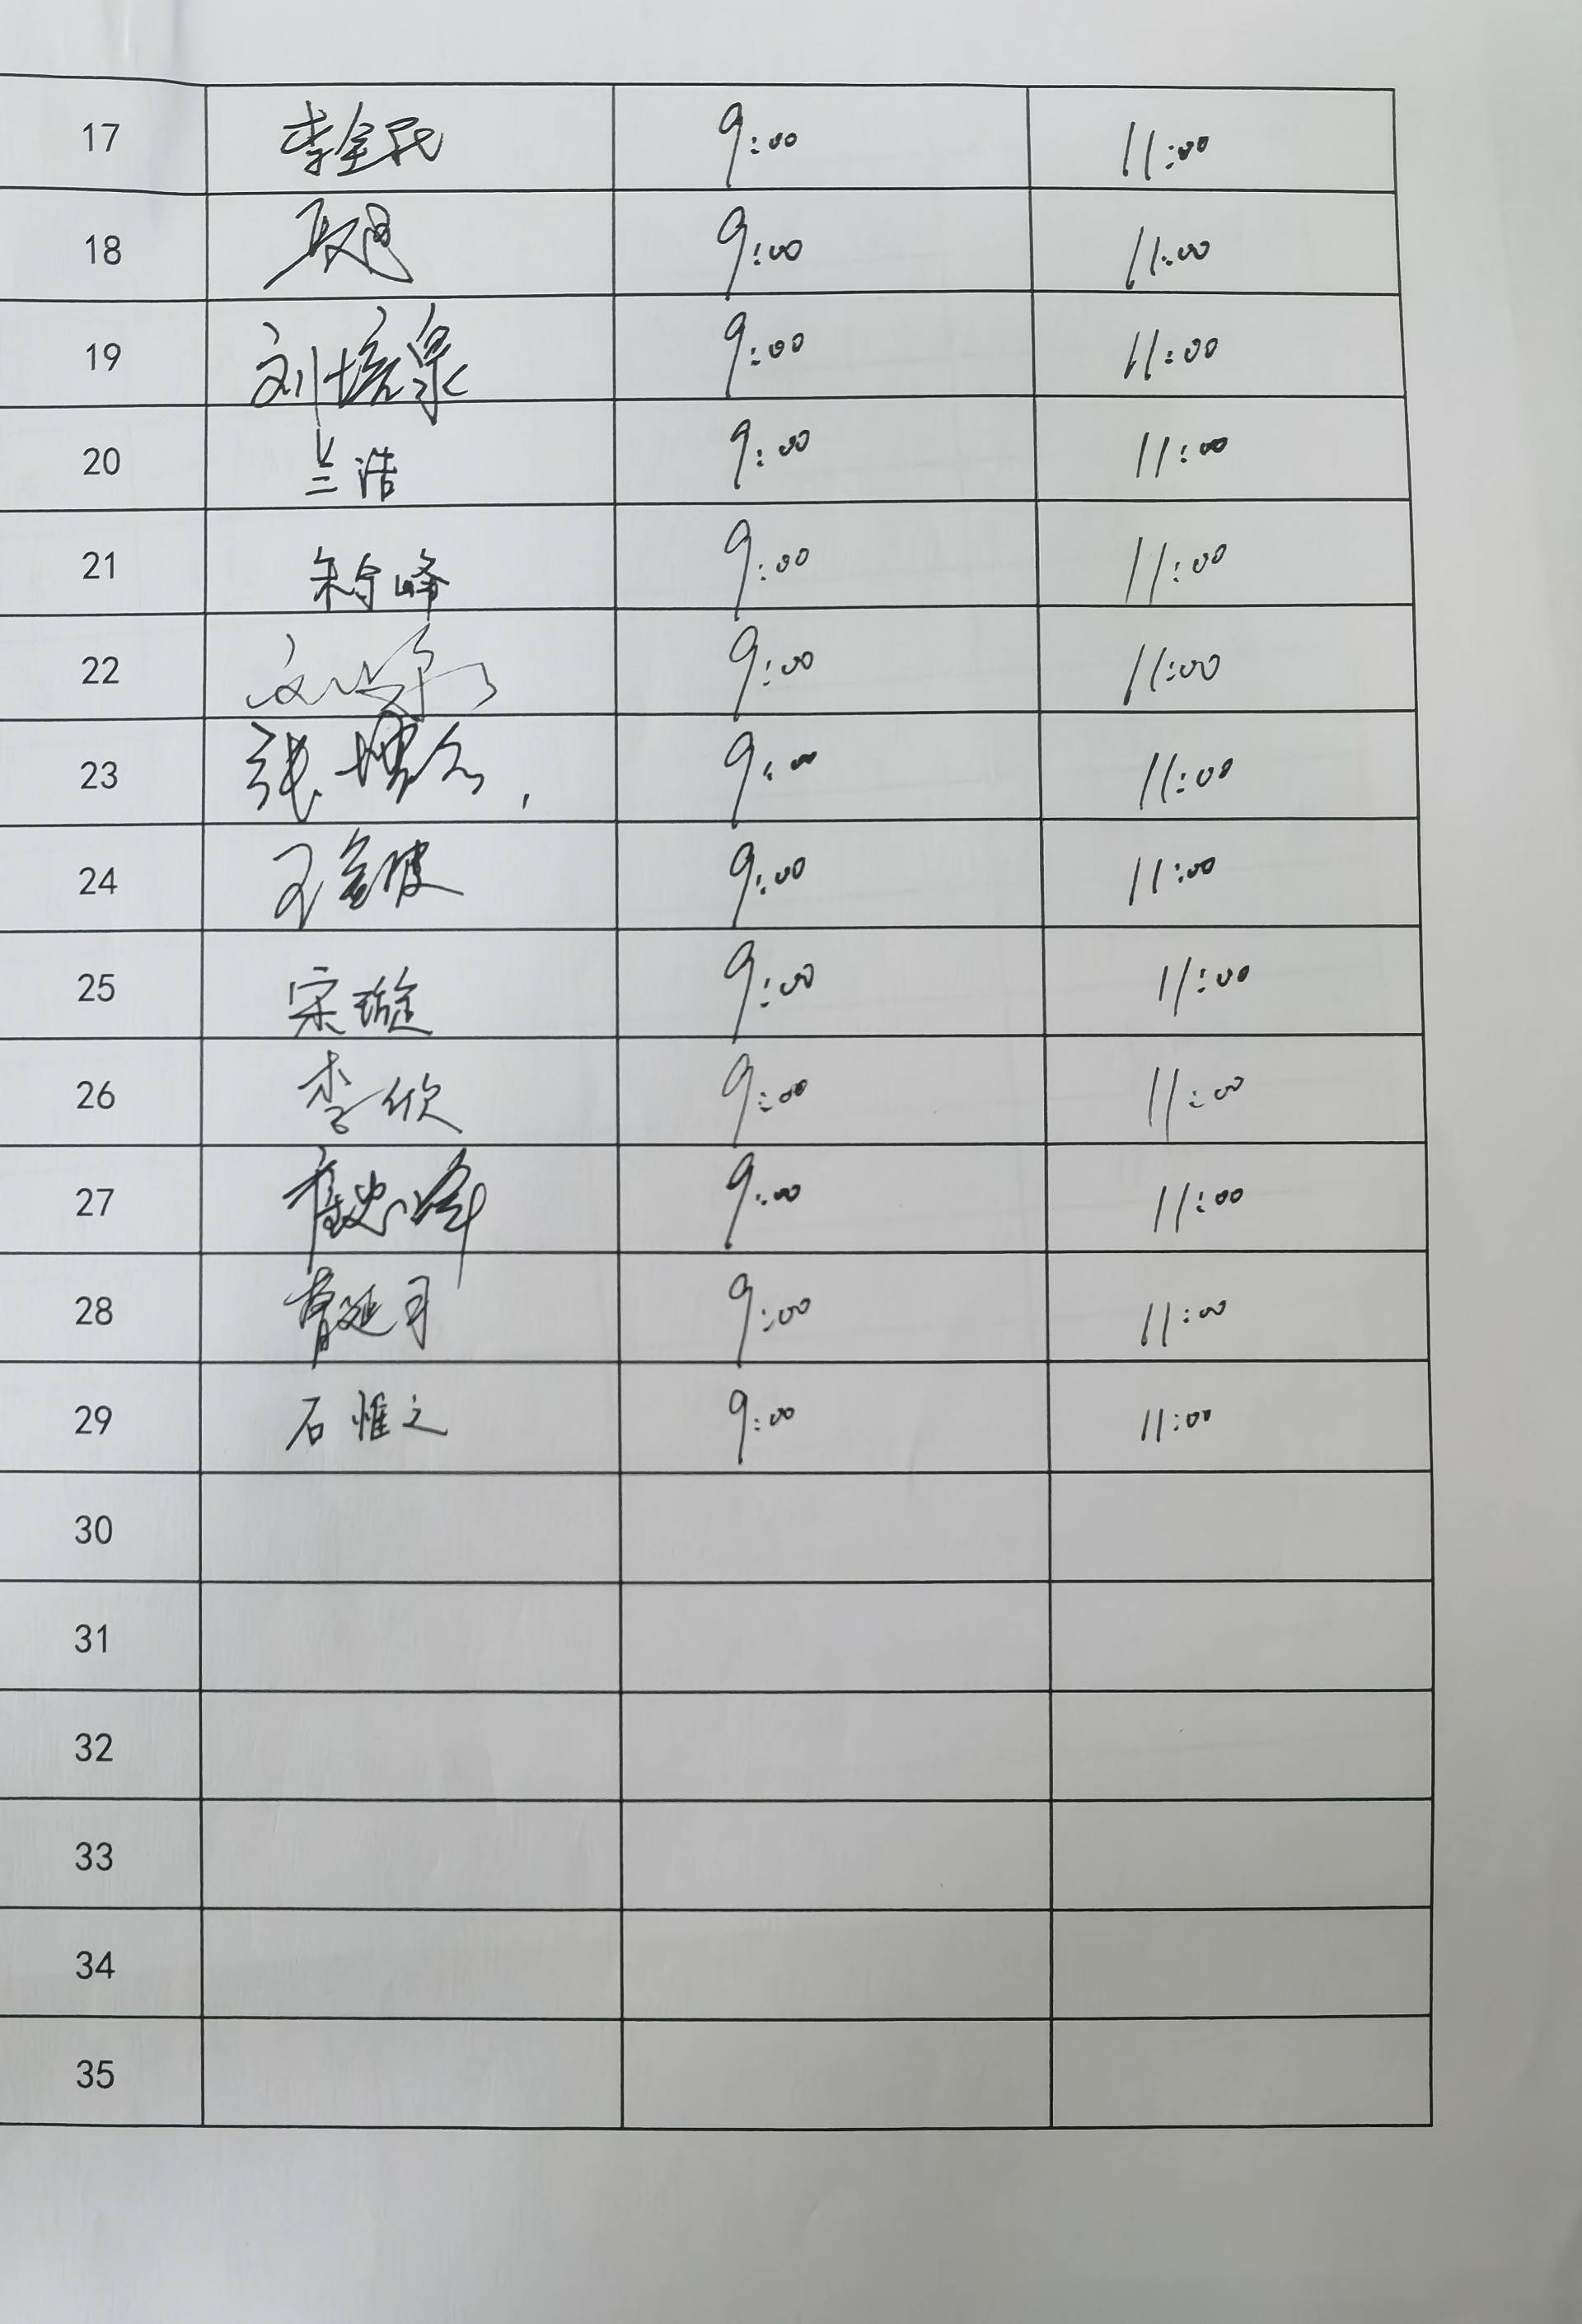 17 李金 9:00 11:00
18 9:00 11:00
19 刘培泉 9:00 11:00
20 兰浩 9:00 11:00
21 朱守峰 9:00 11:00
22 刘 9:00 11:00
23 张博 9:00 11:00
24 王金波 9:00 11:00
25 宋璇 9:00 11:00
26 李欣 9:00 11:00
27 崔忠峰 9:00 11:00
28 曹延 9:00 11:00
29 石惟之 9:00 11:00
30
31
32
33
34
35